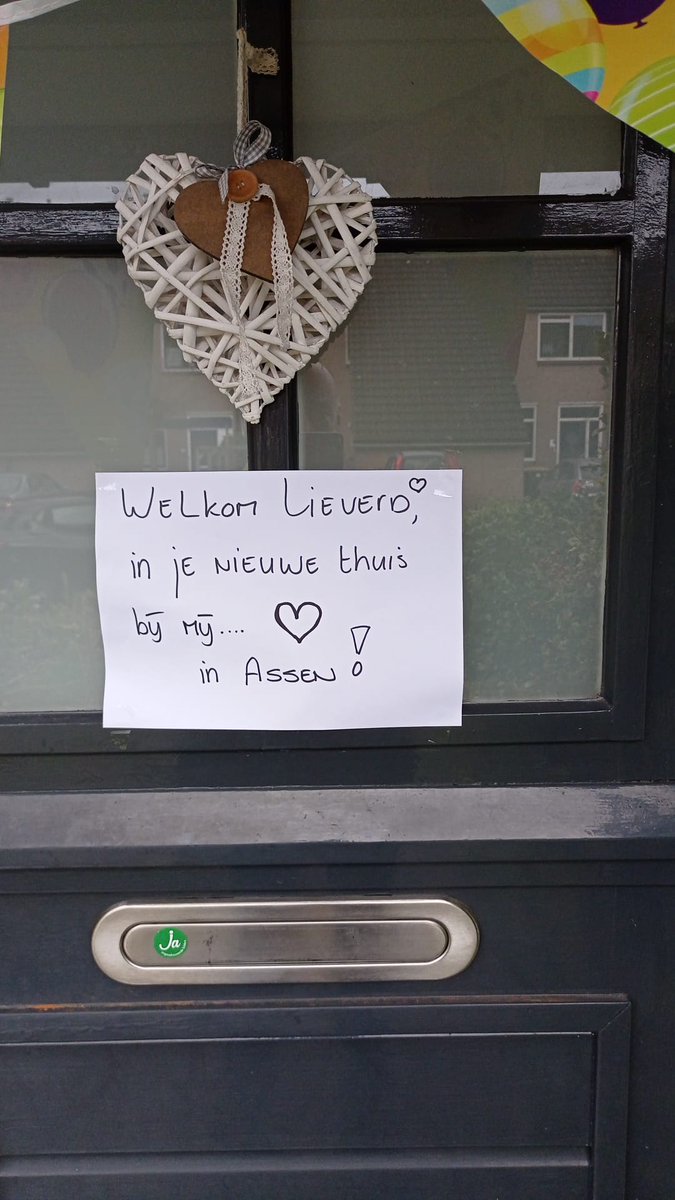 Welkom Lieverd,
in je nieuwe thuis
bij mij....
in Assen!
Ja